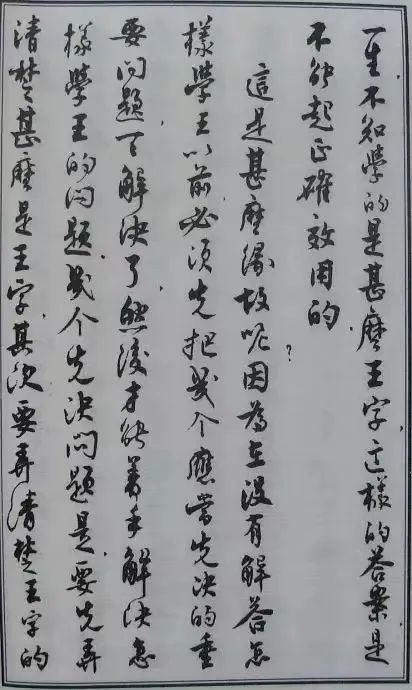 一生，不知學的是甚麼王字，这樣的答案是
不能起正確效用的.
這是甚麼緣故呢？因為在沒有解答怎
樣學王以前，必須先把幾个應當先決的重
要問題，一一解決了，然後才能着手解決怎
樣學王的問題，幾个先決問題是，要先弄
清楚甚麼是王字，其次要弄清楚王字的